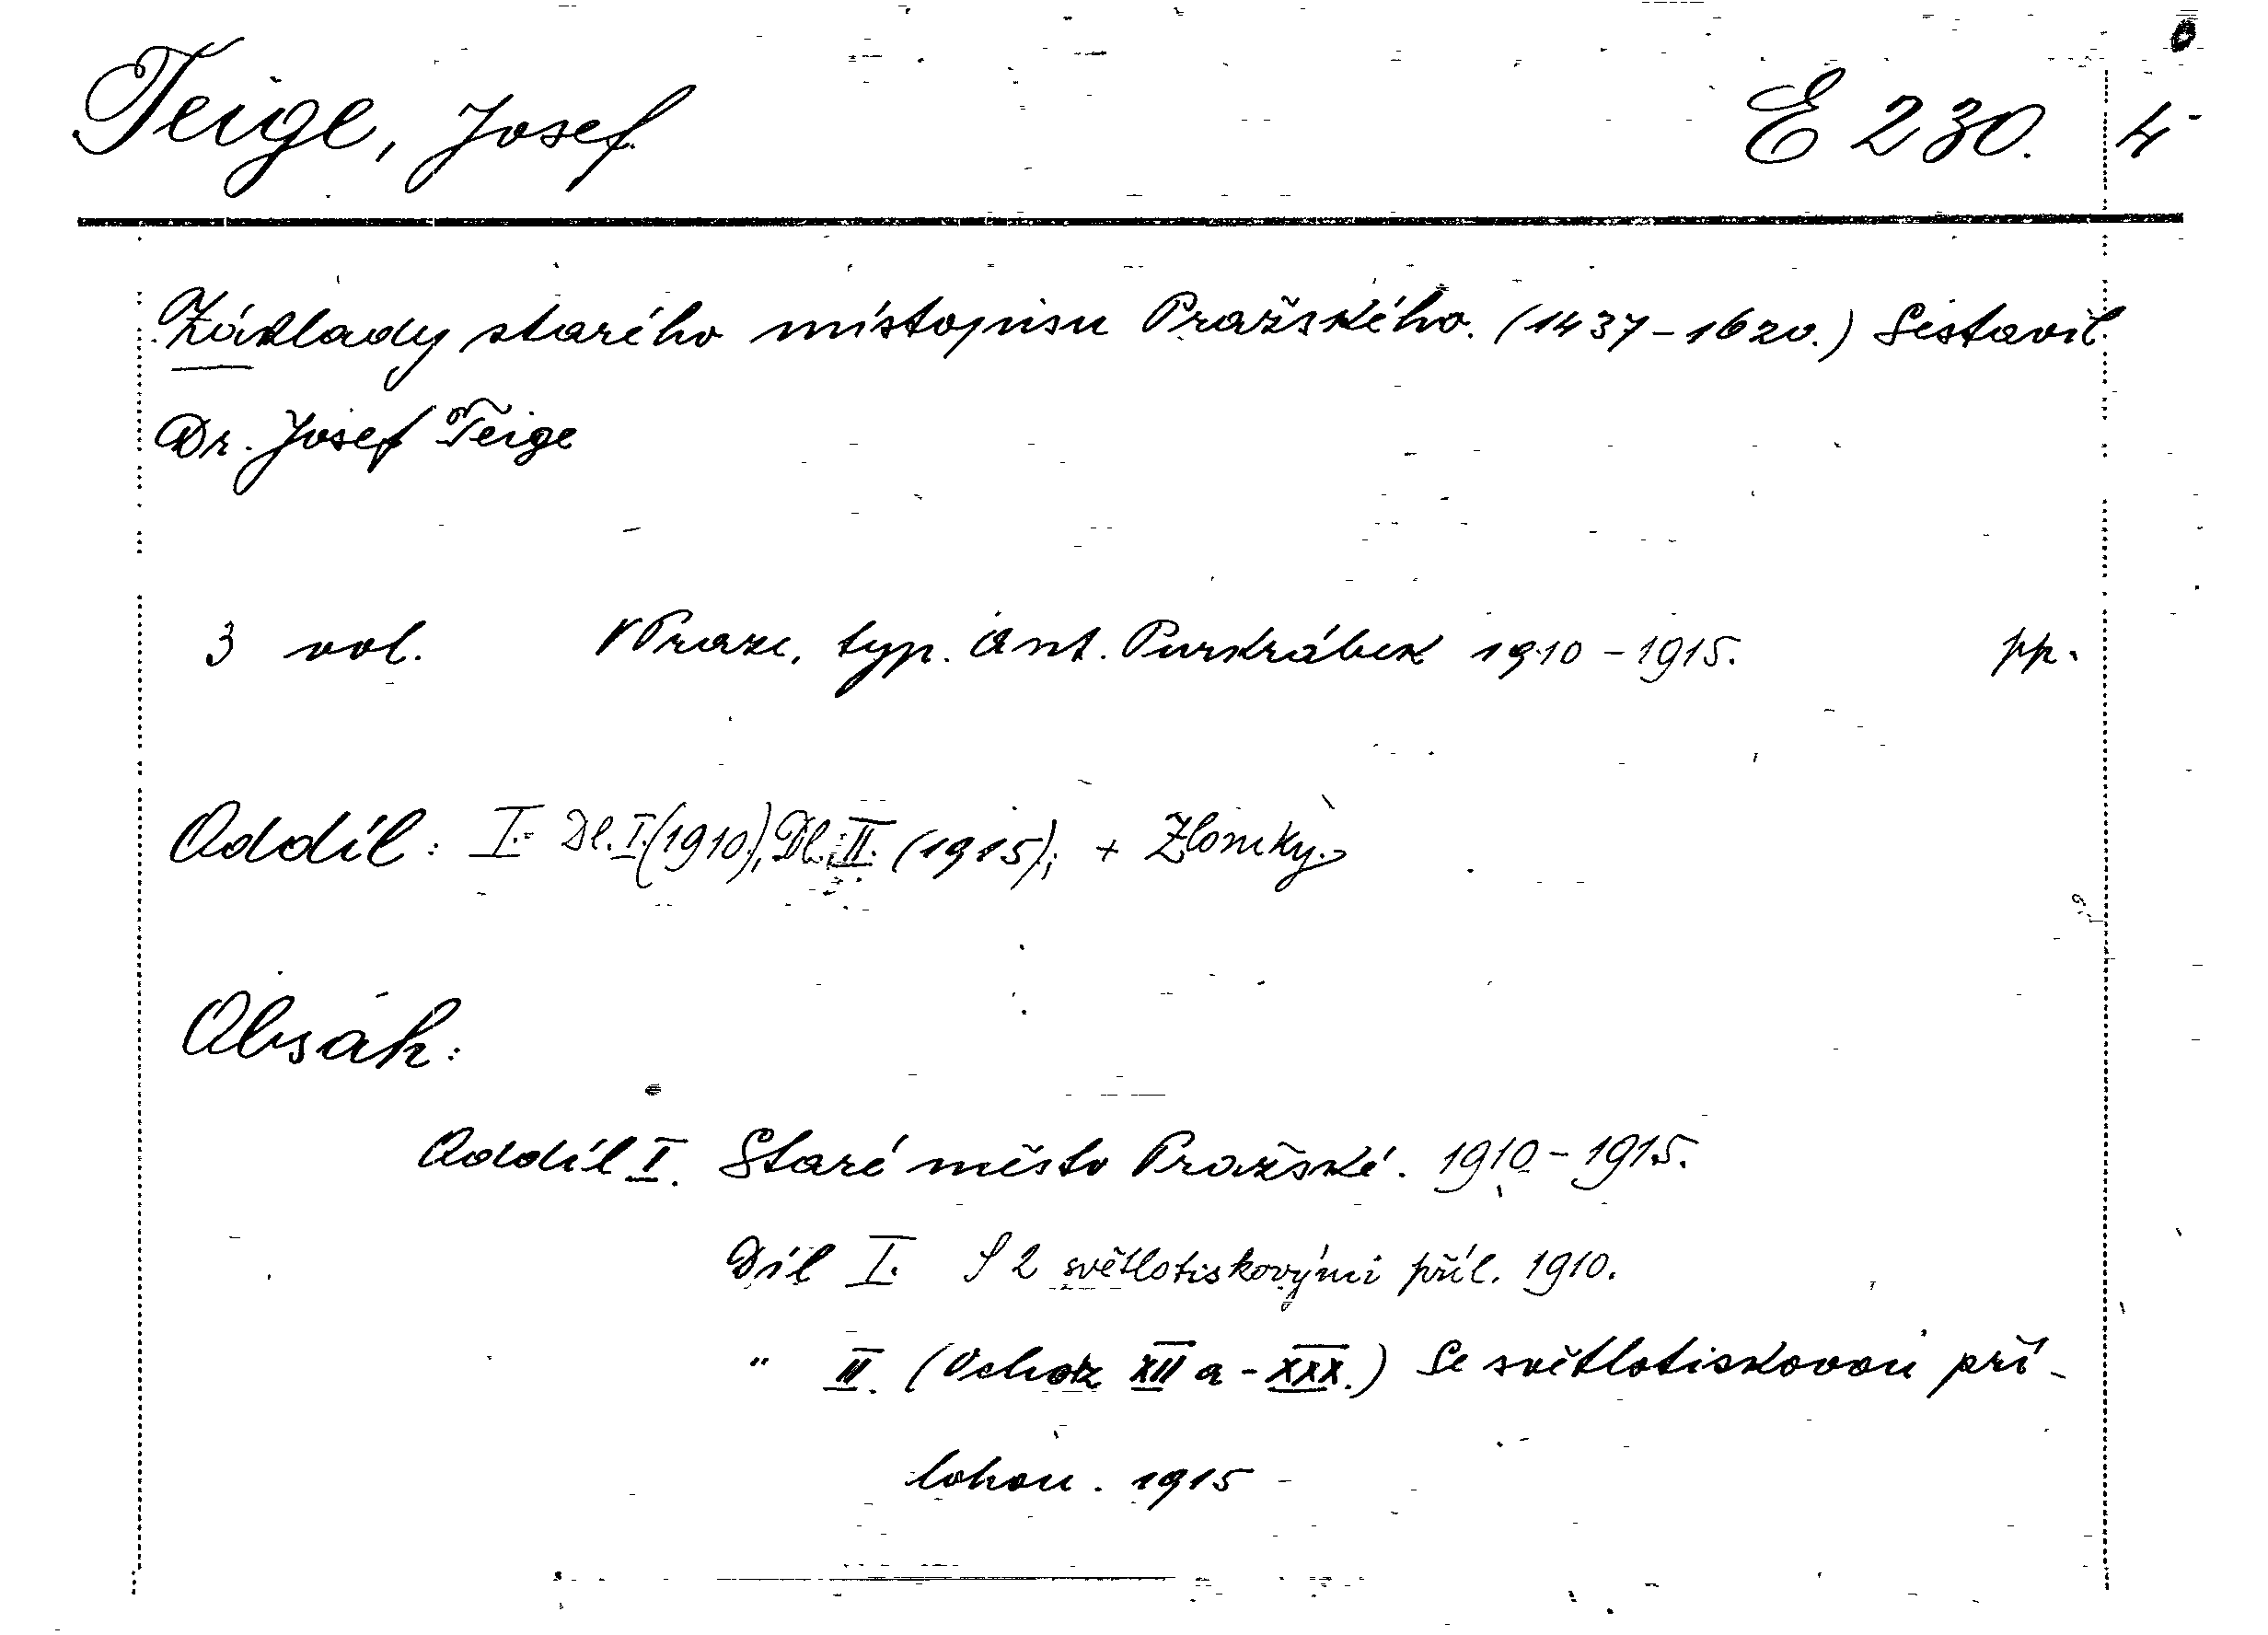 Teige, Josef E 230. 4
Základy starého místopisu Pražského. (1437-1620.) Sestavil
Dr. Josef Teige
3 vol. V Praze, typ. Ant. Purkrábek 1910-1915. pp.
Oddíl: I. Dl. I. (1910), Dl. II. (1915); + Zlomky.
Obsah:
Oddíl I. Staré město Pražské. 1910-1915.
Díl I. S 2 světlotiskovými příl. 1910.
" II. (Vchoz XII a - XXX.) Se světlotiskovou pří-
lohou. 1915